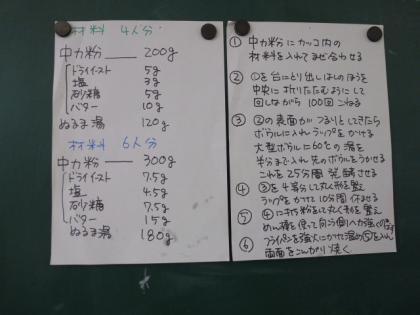 材料 4人分
中力粉 —— 200g
ドライイースト 5g
塩 3g
砂糖 5g
バター 10g
ぬるま湯 120g
材料 6人分
中力粉 —— 300g
ドライイースト 7.5g
塩 4.5g
砂糖 7.5g
バター 15g
ぬるま湯 180g
① 中力粉にカッコ内の
材料を入れてまぜ合わせる
② ①を台にとり出しはしのほうを
中央に折りたたむようにして
回しながら 100回こねる
③ ②の表面がつるりとしてきたら
ボウルに入れラップをかける
大型ボウルに60℃の湯を
半分まで入れ先のボウルをうかせる
これを25分間発酵させる
④ ③を4等分して丸く形を整え
ラップをかけて10分間休ませる
⑤ ④に打ち粉をして丸く形を整え
めん棒を使って向う側へ強く
⑥ フライパンを強火にかけて温め⑤を入れ
両面をこんがり焼く